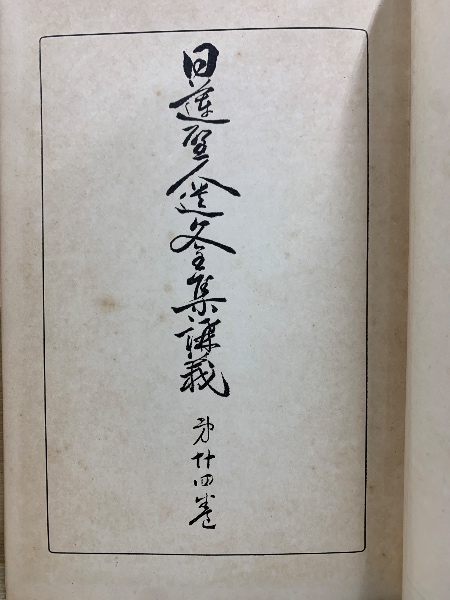 日蓮聖人遺文全集講義
第廿四巻